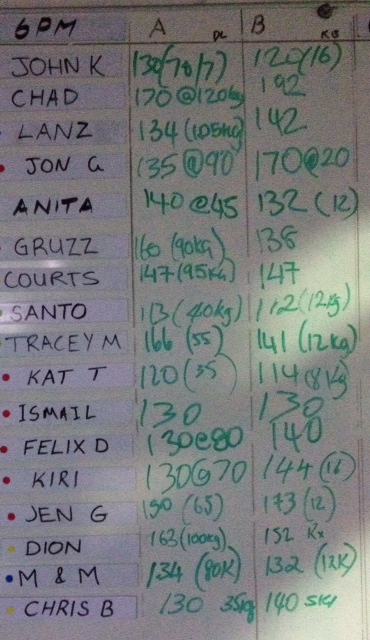 6PM A DL B KB
JOHN K 130(70/7) 120(16)
CHAD 170@120kg 192
LANZ 134 (105kg) 142
JON G 135@90 170@20
ANITA 140@45 132 (12)
GRUZZ 160 (90kg) 138
COURTS 147(95KG) 147
SANTO 113(40kg) 112(12kg)
TRACEY M 166 (55) 141 (12kg)
KAT T 120(35) 114(8Kg)
ISMAIL 130 130
FELIX D 130@80 140
KIRI 130@70 144(16)
JEN G 150 (65) 173(12)
DION 163(100kg) 152 Rx
M & M 134 (80K) 132 (12K)
CHRIS B 130 35kg 140